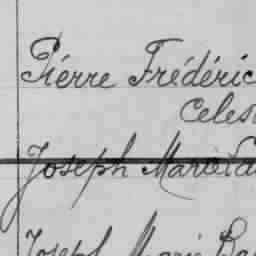 Pierre Frédéric
Celes
Joseph Marie
Joseph Marie Ba